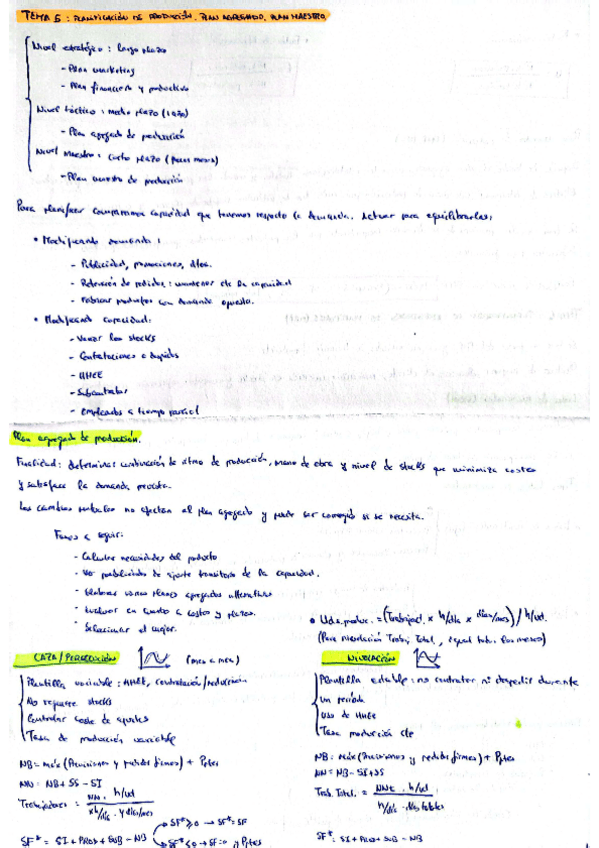 TEMA 5: PLANIFICACIÓN DE PRODUCCIÓN. PLAN AGREGADO. PLAN MAESTRO.
Nivel estratégico: largo plazo
- Plan marketing
- Plan financiero y productivo
Nivel táctico: medio plazo (1 año)
- Plan agregado de producción
Nivel maestro: corto plazo (pocos meses)
- Plan maestro de producción
Para planificar comparamos capacidad que tenemos respecto la demanda. Actuar para equilibrarlas:
• Modificando demanda:
- Publicidad, promociones, dtos.
- Retención de pedidos: mantener cte la capacidad
- Fabricar productos con demanda opuesta.
• Modificando capacidad:
- Variar los stocks
- Contrataciones o despidos
- HHEE
- Subcontratar
- Empleados a tiempo parcial
Plan agregado de producción.
Finalidad: determinar combinación de ritmo de producción, mano de obra y nivel de stocks que minimiza costes
y satisface la demanda prevista.
Los cambios no afectan al plan agregado y puede ser corregido si se necesita.
Fases a seguir:
- Calcular necesidades del producto
- Ver posibilidades de ajuste transitorio de la capacidad.
- Elaborar varios planes agregados alternativos
- Evaluar en cuanto a costos y plazos.
- Seleccionar el mejor.
• Uds. produc. = (Trabajad. x h/día x días/mes) / h/ud.
(Para nivelación Trabaj Total, igual todos los meses)
CAZA/PERSECUCIÓN (mes a mes)
Plantilla variable: HHEE, contratación/reducción
No requiere stocks
Controlar coste de ajustes
Tasa de producción variable
NB = máx (Previsiones y pedidos firmes) + Pptes
NN: NB + SS - SI
Trabajadores: NN · h/ud / x h/día · y días/mes
SF* = SI + PROD + SUB - NB
SF* ≥ 0 → SF* = SF
SF* ≤ 0 → SF = 0 // Pptes
NIVELACIÓN
Plantilla estable: no contratar ni despedir durante
un periodo
Uso de HHEE
Tasa producción cte
NB: máx (Previsiones y pedidos firmes) + Pptes
NN = NB - SI + SS
Trab. Total. = NN · h/ud / h/día · días
SF*: SI + PROD + SUB - NB